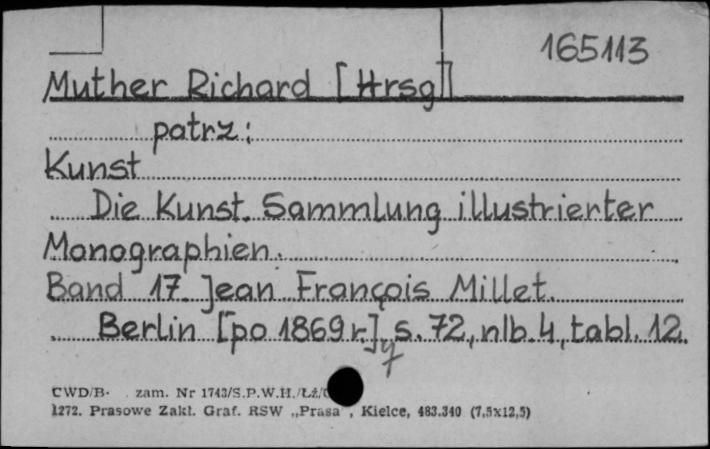 165113
Muther Richard [Hrsg]
patrz:
Kunst
Die Kunst. Sammlung illustrierter
Monographien.
Band 17. Jean François Millet.
Berlin [po 1869 r.], s. 72, nlb. 4, tabl. 12.
CWD/B- . zam. Nr 1743/S.P.W.H./Łż/
1272. Prasowe Zakł. Graf. RSW „Prasa", Kielce, 483.340 (7,5x12,5)